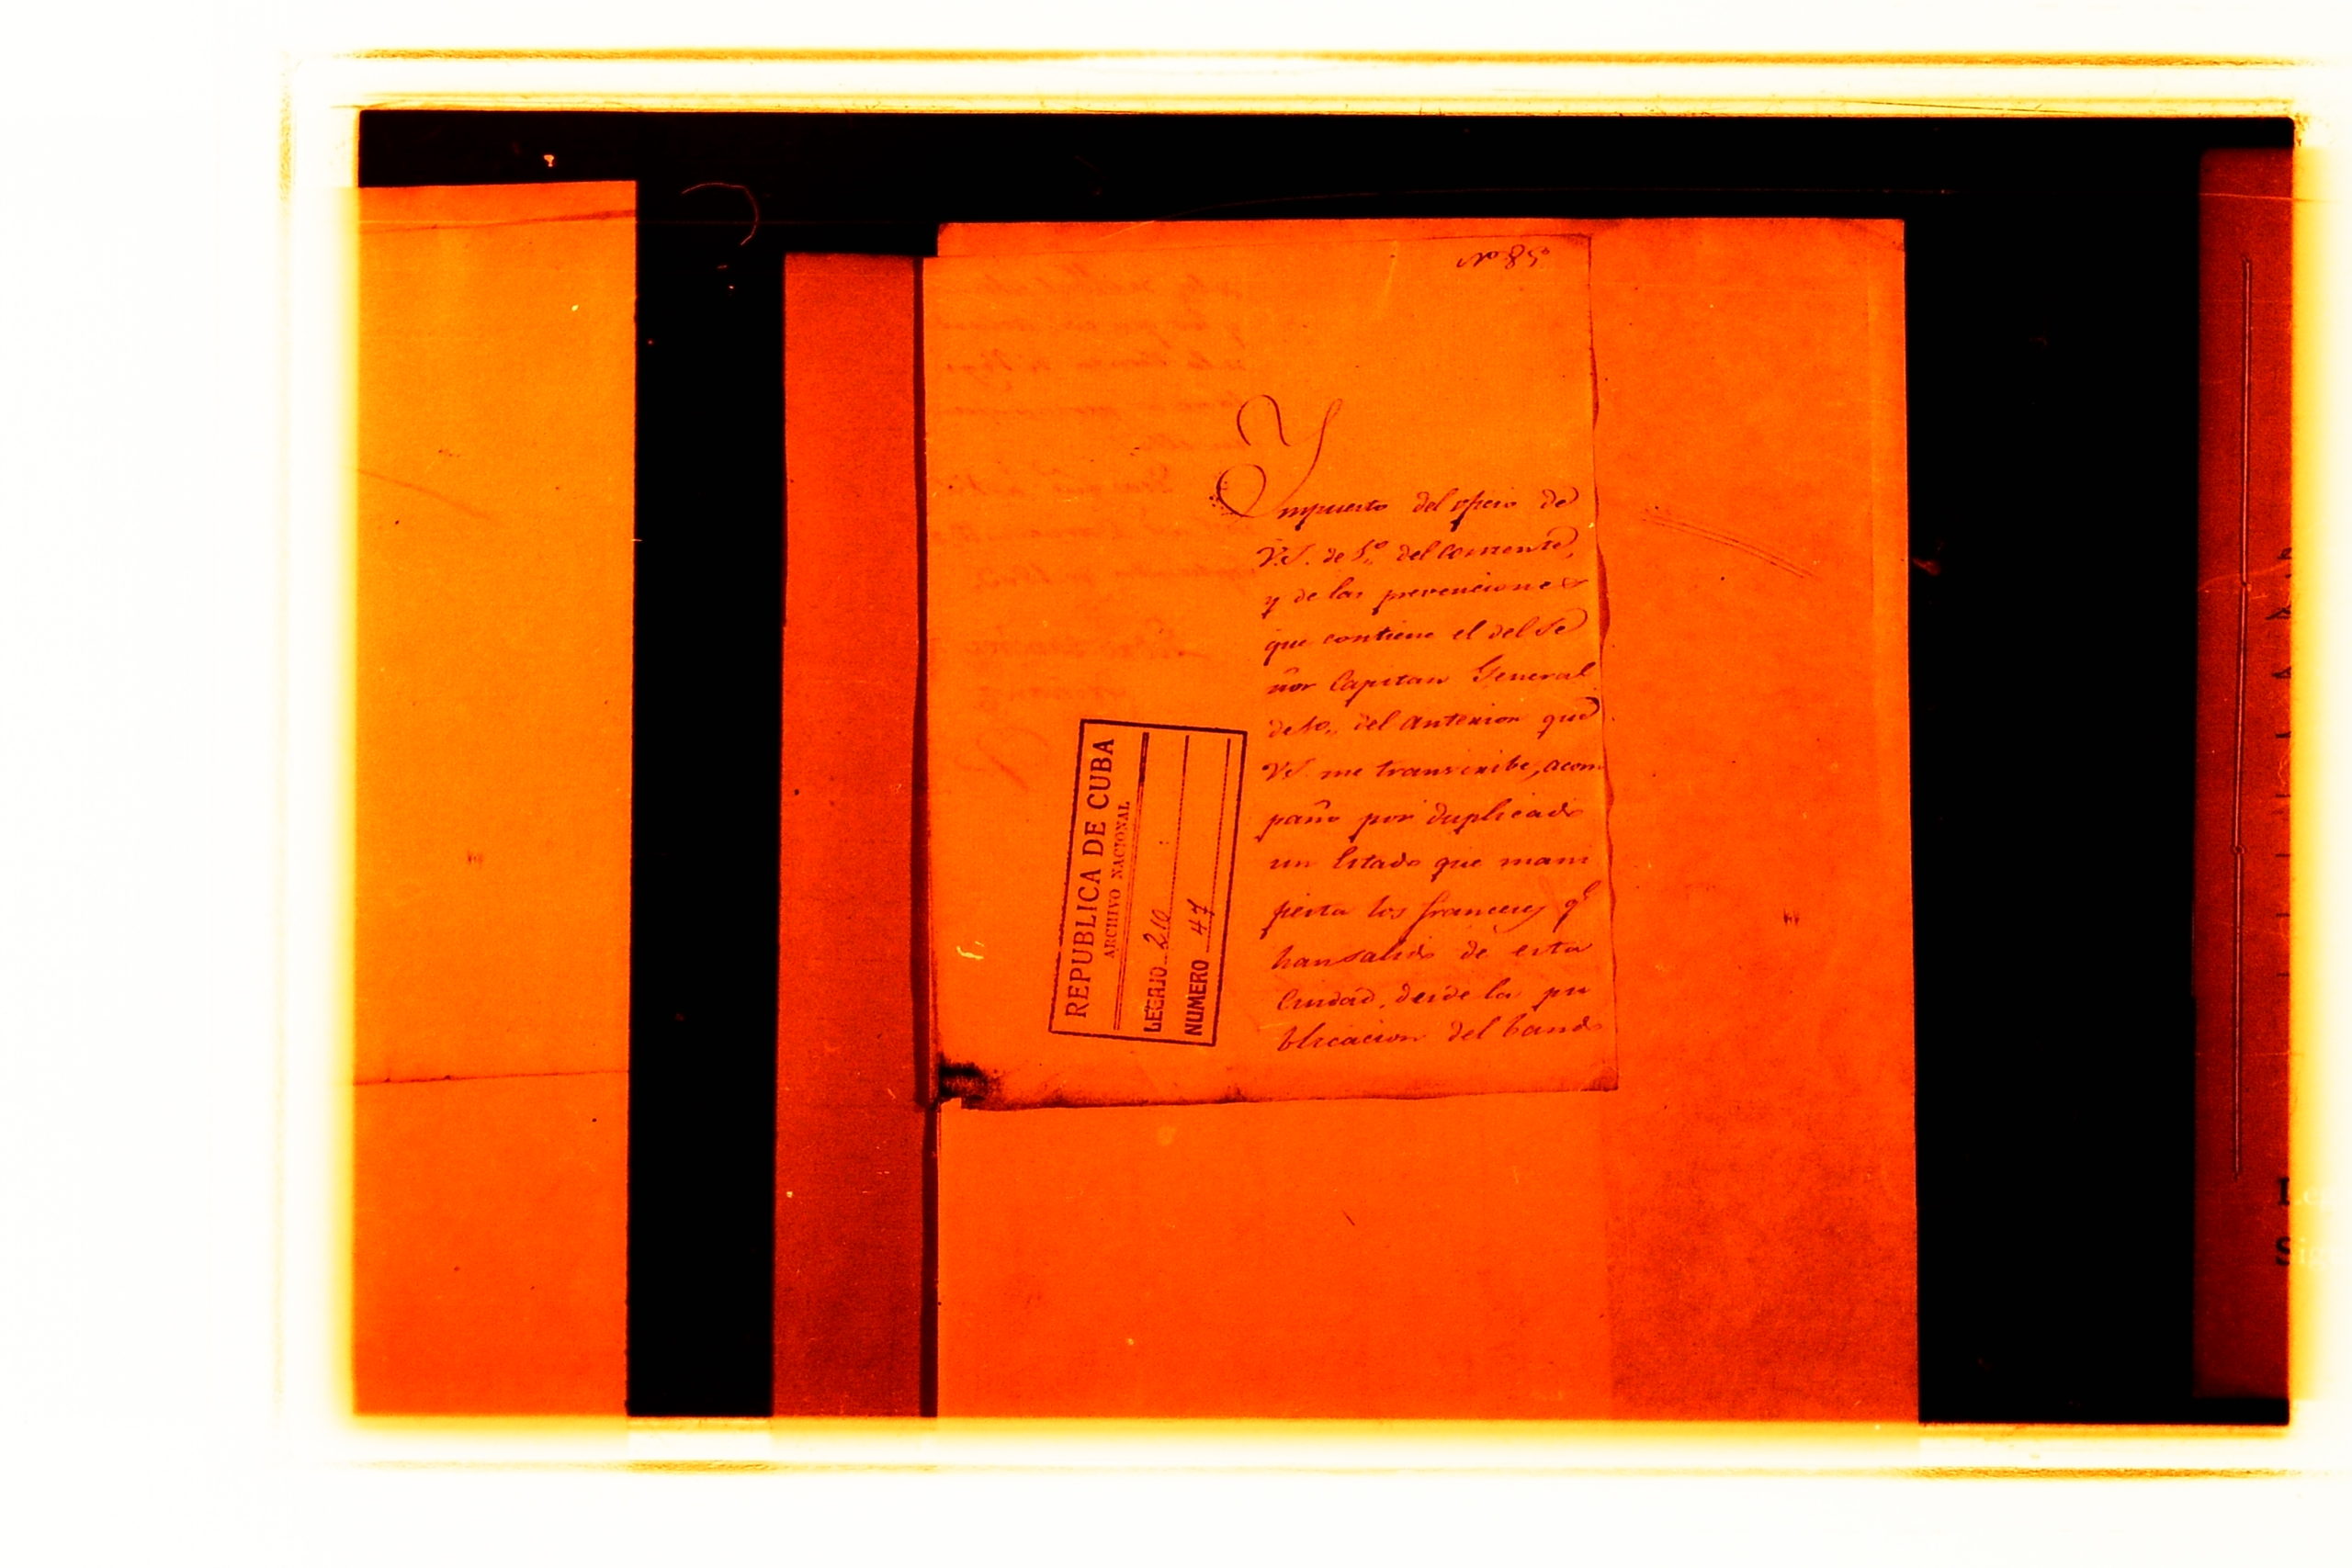 Nº 85.
Impuesto del oficio de
V.S. de 5,,º del corriente,
y de las prevenciones
que contiene el del Se
ñor Capitan General
del anterior que
V.S. me transcribe, acom
paño por duplicado
un Estado que mani
fiesta los franceses qe
han salido de esta
Ciudad, desde la pu
blicacion del bando
REPUBLICA DE CUBA
ARCHIVO NACIONAL
LEGAJO 210
NUMERO 47